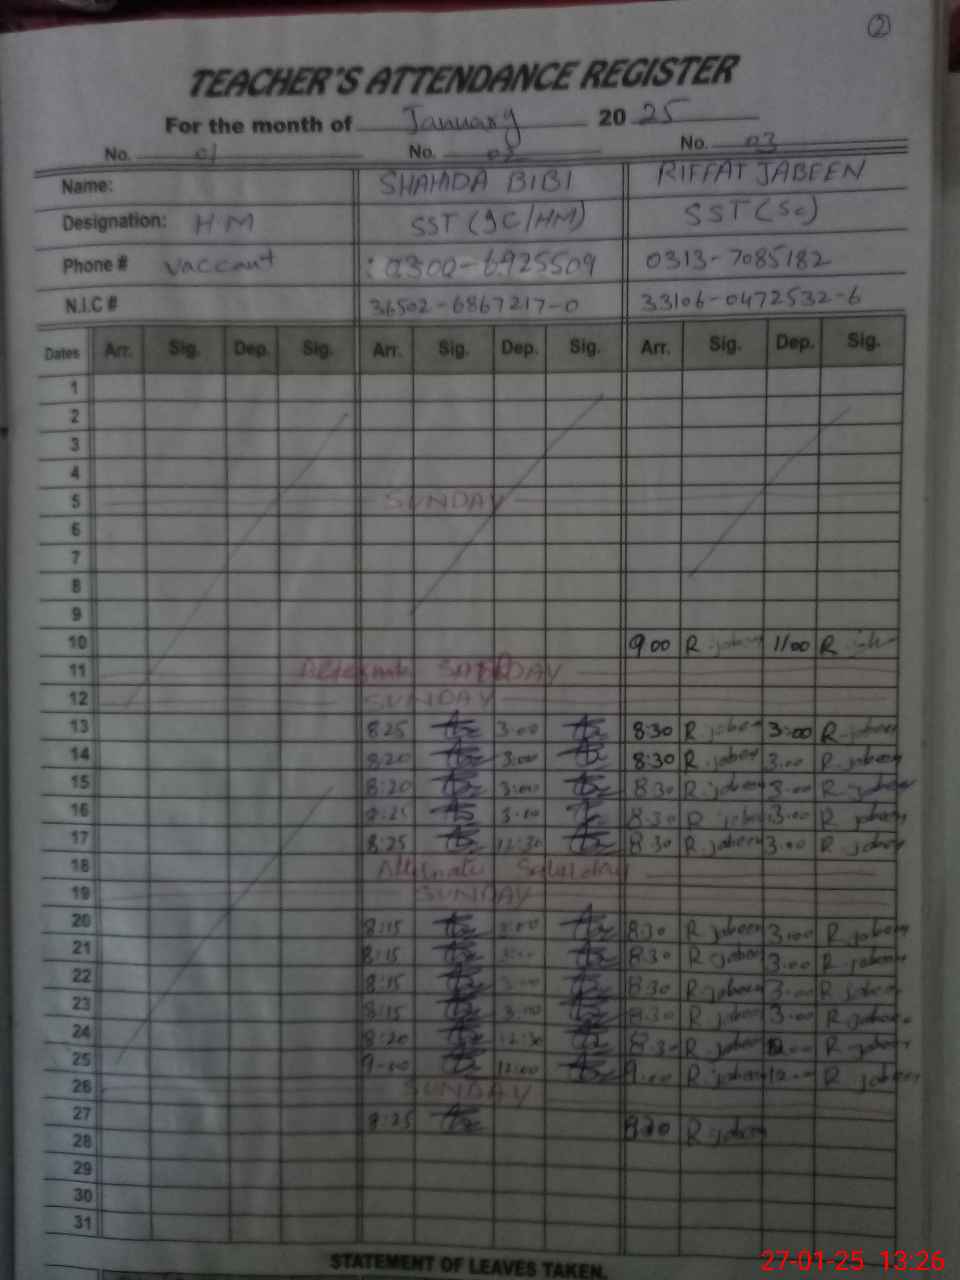 2
TEACHER'S ATTENDANCE REGISTER
For the month of January 2025
No. 01 No. 02 No. 03
Name: SHAHIDA BIBI RIFFAT JABEEN
Designation: HM SST (SC/HM) SST (Sc)
Phone # vaccant 0300-6925509 0313-7085182
N.I.C # 36502-6867217-0 33106-0472532-6
Dates Arr. Sig. Dep. Sig. Arr. Sig. Dep. Sig. Arr. Sig. Dep. Sig.
1
2
3
4
5 SUNDAY
6
7
8
9
10 9 00 R.jabeen 11 00 R
11 SATURDAY
12 SUNDAY
13 8:25 3:00 8:30 R jabeen 3:00 R.jabeen
14 8:20 3:00 8:30 R.jabeen 3:00 R.jabeen
15 8:20 3:00 8:30 R jabeen 3:00 R.jabeen
16 3:00 8:30 R jabeen 3:00 R jabeen
17 8:25 12:30 8:30 R jabeen 3:00 R.jabeen
18 Alternate Saturday
19 SUNDAY
20 8:15 3:00 8:30 R jabeen 3:00 R jabeen
21 8:15 3:00 8:30 R jabeen 3:00 R jabeen
22 8:15 3:00 8:30 R jabeen 3:00 R jabeen
23 8:15 3:00 8:30 R jabeen 3:00 R jabeen
24 8:20 12:30 8:30 R jabeen R jabeen
25 9:00 12:00 9:00 R jabeen 12:00 R jabeen
26 SUNDAY
27 8:25 R jabeen
28
29
30
31
STATEMENT OF LEAVES TAKEN.
27-01-25 13:26